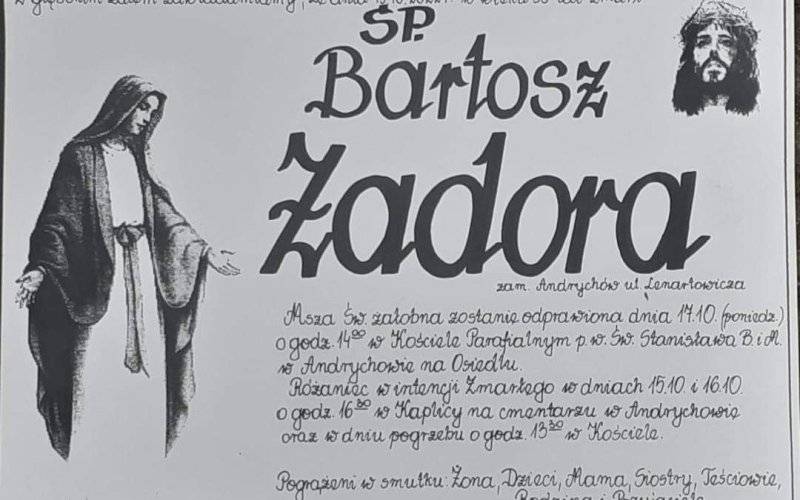 w głębokim żalem zawiadamiamy, że dnia 13.10.2022r. w wieku 38 lat zmarł
ŚP.
Bartosz
Zadora
zam. Andrychów ul. Lenartowicza
Msza Św. żałobna zostanie odprawiona dnia 17.10. (poniedz.)
o godz. 14⁰⁰ w Kościele Parafialnym p.w. Św. Stanisława B. i M.
w Andrychowie na Osiedlu.
Różaniec w intencji Zmarłego w dniach 15.10. i 16.10.
o godz. 16³⁰ w Kaplicy na cmentarzu w Andrychowie
oraz w dniu pogrzebu o godz. 13³⁰ w Kościele.
Pogrążeni w smutku: Żona, Dzieci, Mama, Siostry, Teściowie,
Rodzina i Przyjaciele